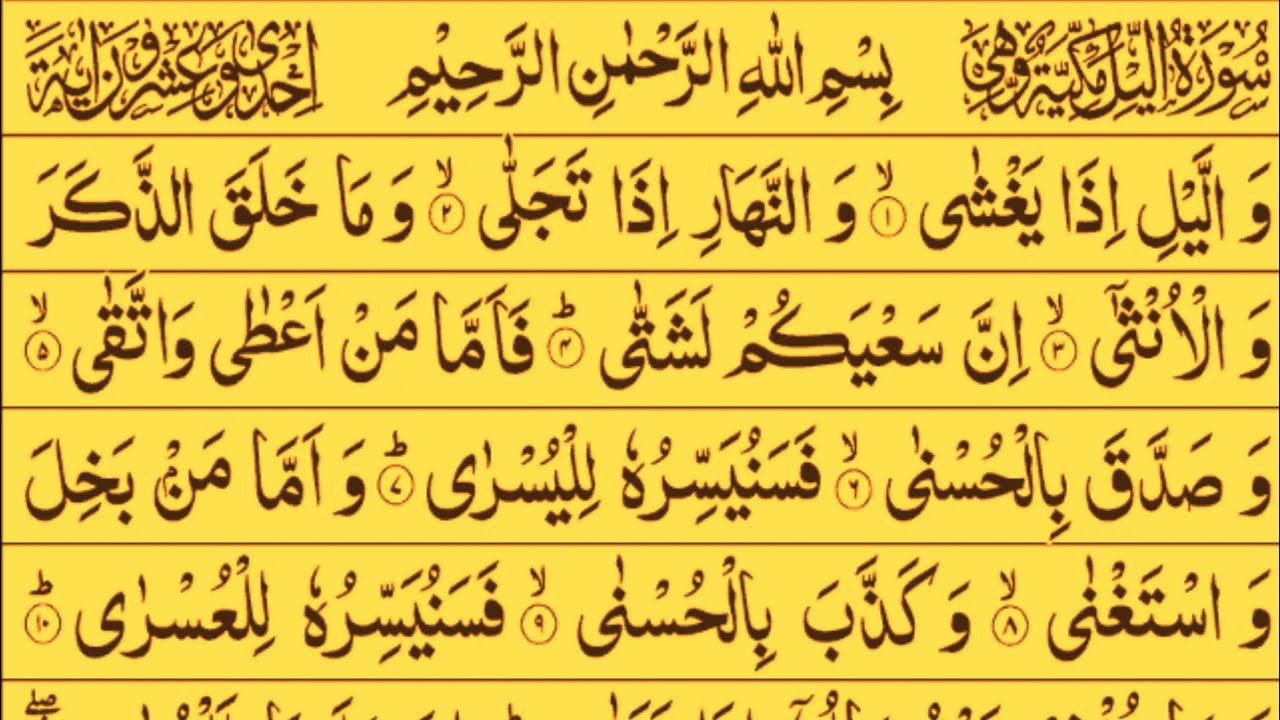 سُوْرَةُ الَّيْلِ مَكِّيَّةٌ وَّهِىَ بِسْمِ اللهِ الرَّحْمٰنِ الرَّحِيْمِ اِحْدٰى وَعِشْرُوْنَ اٰيَةً
وَ الَّيْلِ اِذَا يَغْشٰى ۙ‏﴿۱﴾ وَ النَّهَارِ اِذَا تَجَلّٰى ۙ‏﴿۲﴾ وَ مَا خَلَقَ الذَّكَرَ
وَ الْاُنْثٰٓى ۙ‏﴿۳﴾ اِنَّ سَعْيَكُمْ لَشَتّٰى ؕ‏﴿۴﴾ فَاَمَّا مَنْ اَعْطٰى وَاتَّقٰى ۙ‏﴿۵﴾
وَ صَدَّقَ بِالْحُسْنٰى ۙ‏﴿۶﴾ فَسَنُيَسِّرُهٗ لِلْيُسْرٰى ؕ‏﴿۷﴾ وَ اَمَّا مَنْۢ بَخِلَ
وَ اسْتَغْنٰى ۙ‏﴿۸﴾ وَ كَذَّبَ بِالْحُسْنٰى ۙ‏﴿۹﴾ فَسَنُيَسِّرُهٗ لِلْعُسْرٰى ؕ‏﴿۱۰﴾